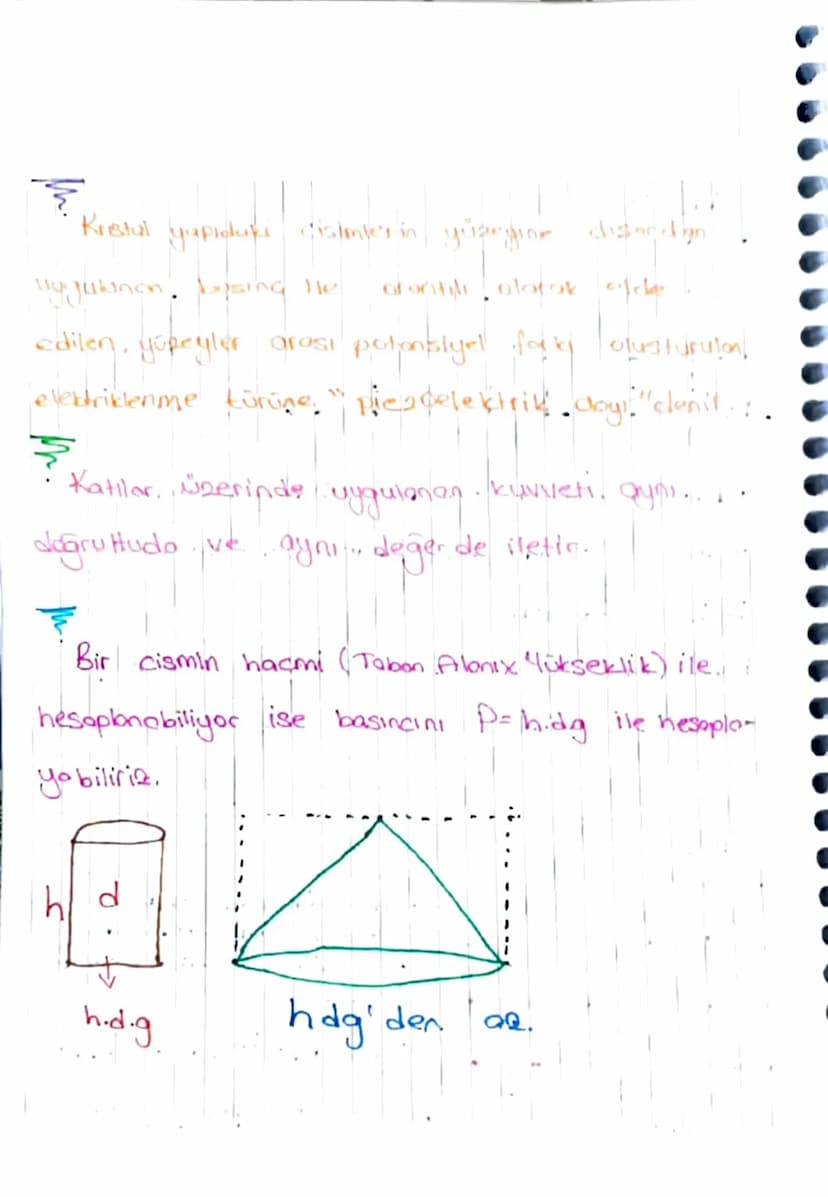 Kristal yapıdaki cisimlerin yüzeyine dışarıdan
uygulanan basınç ile orantılı olarak elde
edilen, yüzeyler arası potansiyel farkı oluşturulan
elektriklenme türüne "piezoelektirik olayı" denir.
Katılar, üzerinde uygulanan kuvveti aynı
doğrultuda ve aynı değerde iletir.
Bir cismin hacmi (Taban Alanıx Yükseklik) ile
hesaplanabiliyor ise basıncını P= h.dg ile hesapla-
yabiliriz.
h d
h.d.g hdg'den az.